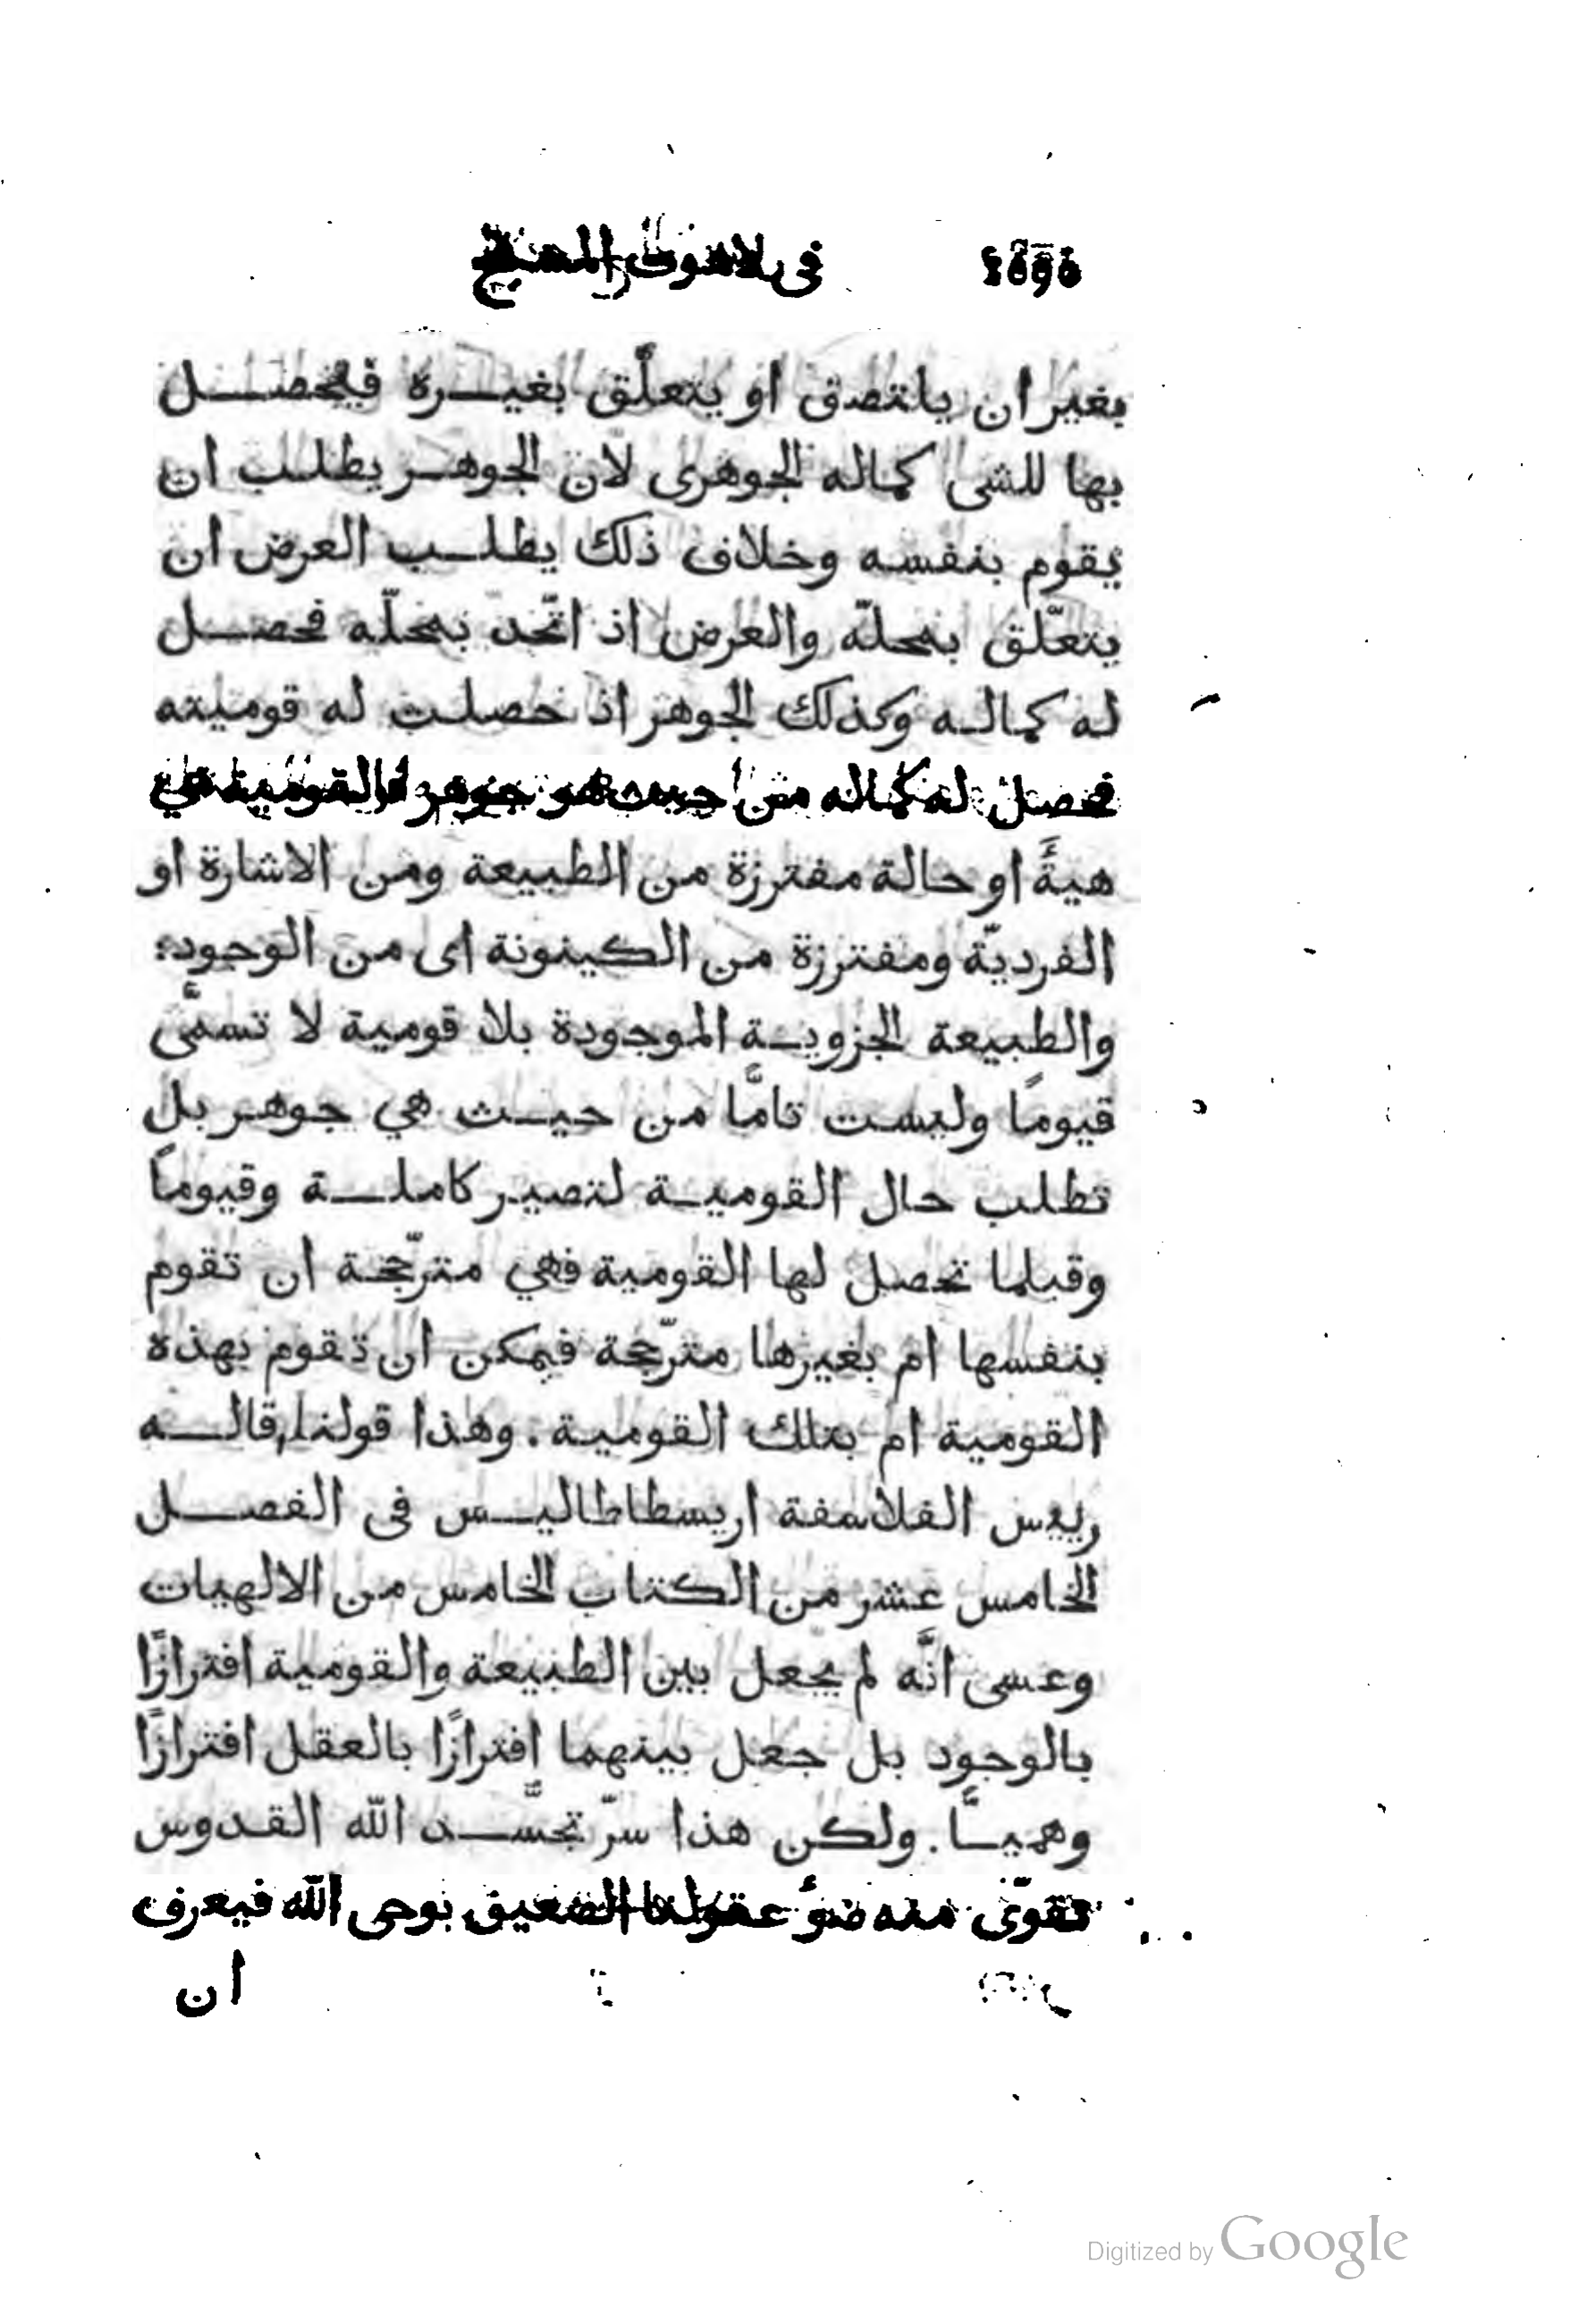 فى لاهوت المسيح
بغير ان يلتصق او يتعلّق بغيـــره فيحصـــل
بها للشى كماله الجوهرى لان الجوهــر يطلــب ان
يقوم بنفسه وخلاف ذلك يطلــب العرض ان
يتعلّق بمحلّه والعرض اذ اتّحد بمحلّه فحصــل
له كمالــه وكذلك الجوهر اذ حصلت له قوميته
فحصل له كماله من حيث هو جوهر والقومية هي
هيةً او حالة مفترزة من الطبيعة ومن الاشارة او
الفرديّة ومفترزة من الكينونة اى من الوجود؛
والطبيعة الجزويــة الموجودة بلا قومية لا تسمَّى
قيومًا وليست تامًّا من حيــث هي جوهـر بل
تطلب حال القوميــة لتصيـر كاملــة وقيومًا
وقبلما تحصل لها القومية فهي مترجّحـة ان تقوم
بنفسها ام بغيرها مترجّحة فيمكن ان تقوم بهذه
القومية ام بتلك القوميـة. وهذا قولنا قالـــه
رييس الفلاسفة اريسطاطاليــس فى الفصـــل
الخامس عشر من الكتاب الخامس من الالهيات
وعسى انَّه لم يجعل بين الطبيعة والقومية افترازًا
بالوجود بل جعل بينهما افترازًا بالعقل افترازًا
وهميــًّا. ولكن هذا سرّ تجسّــد الله القـدوس
تقوّى منه ضوُ عقولنا الضعيق بوحى الله فيعرف
ان
Digitized by Google